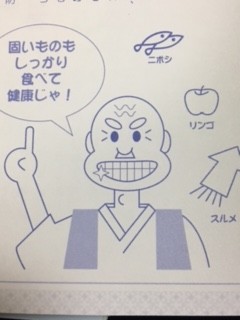 固いものも
しっかり
食べて
健康じゃ！
ニボシ
リンゴ
スルメ